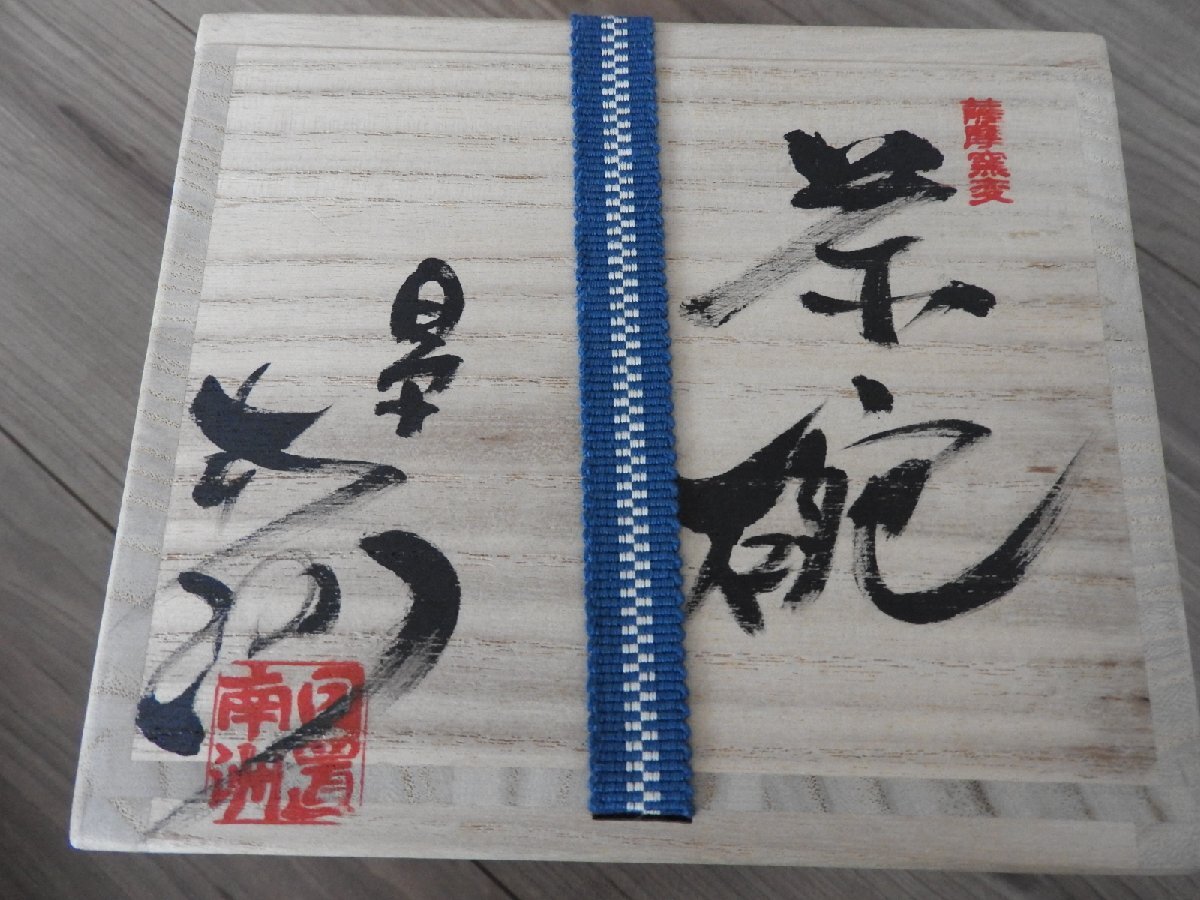 薩摩窯変
茶碗
日置
南洲
日置
南洲